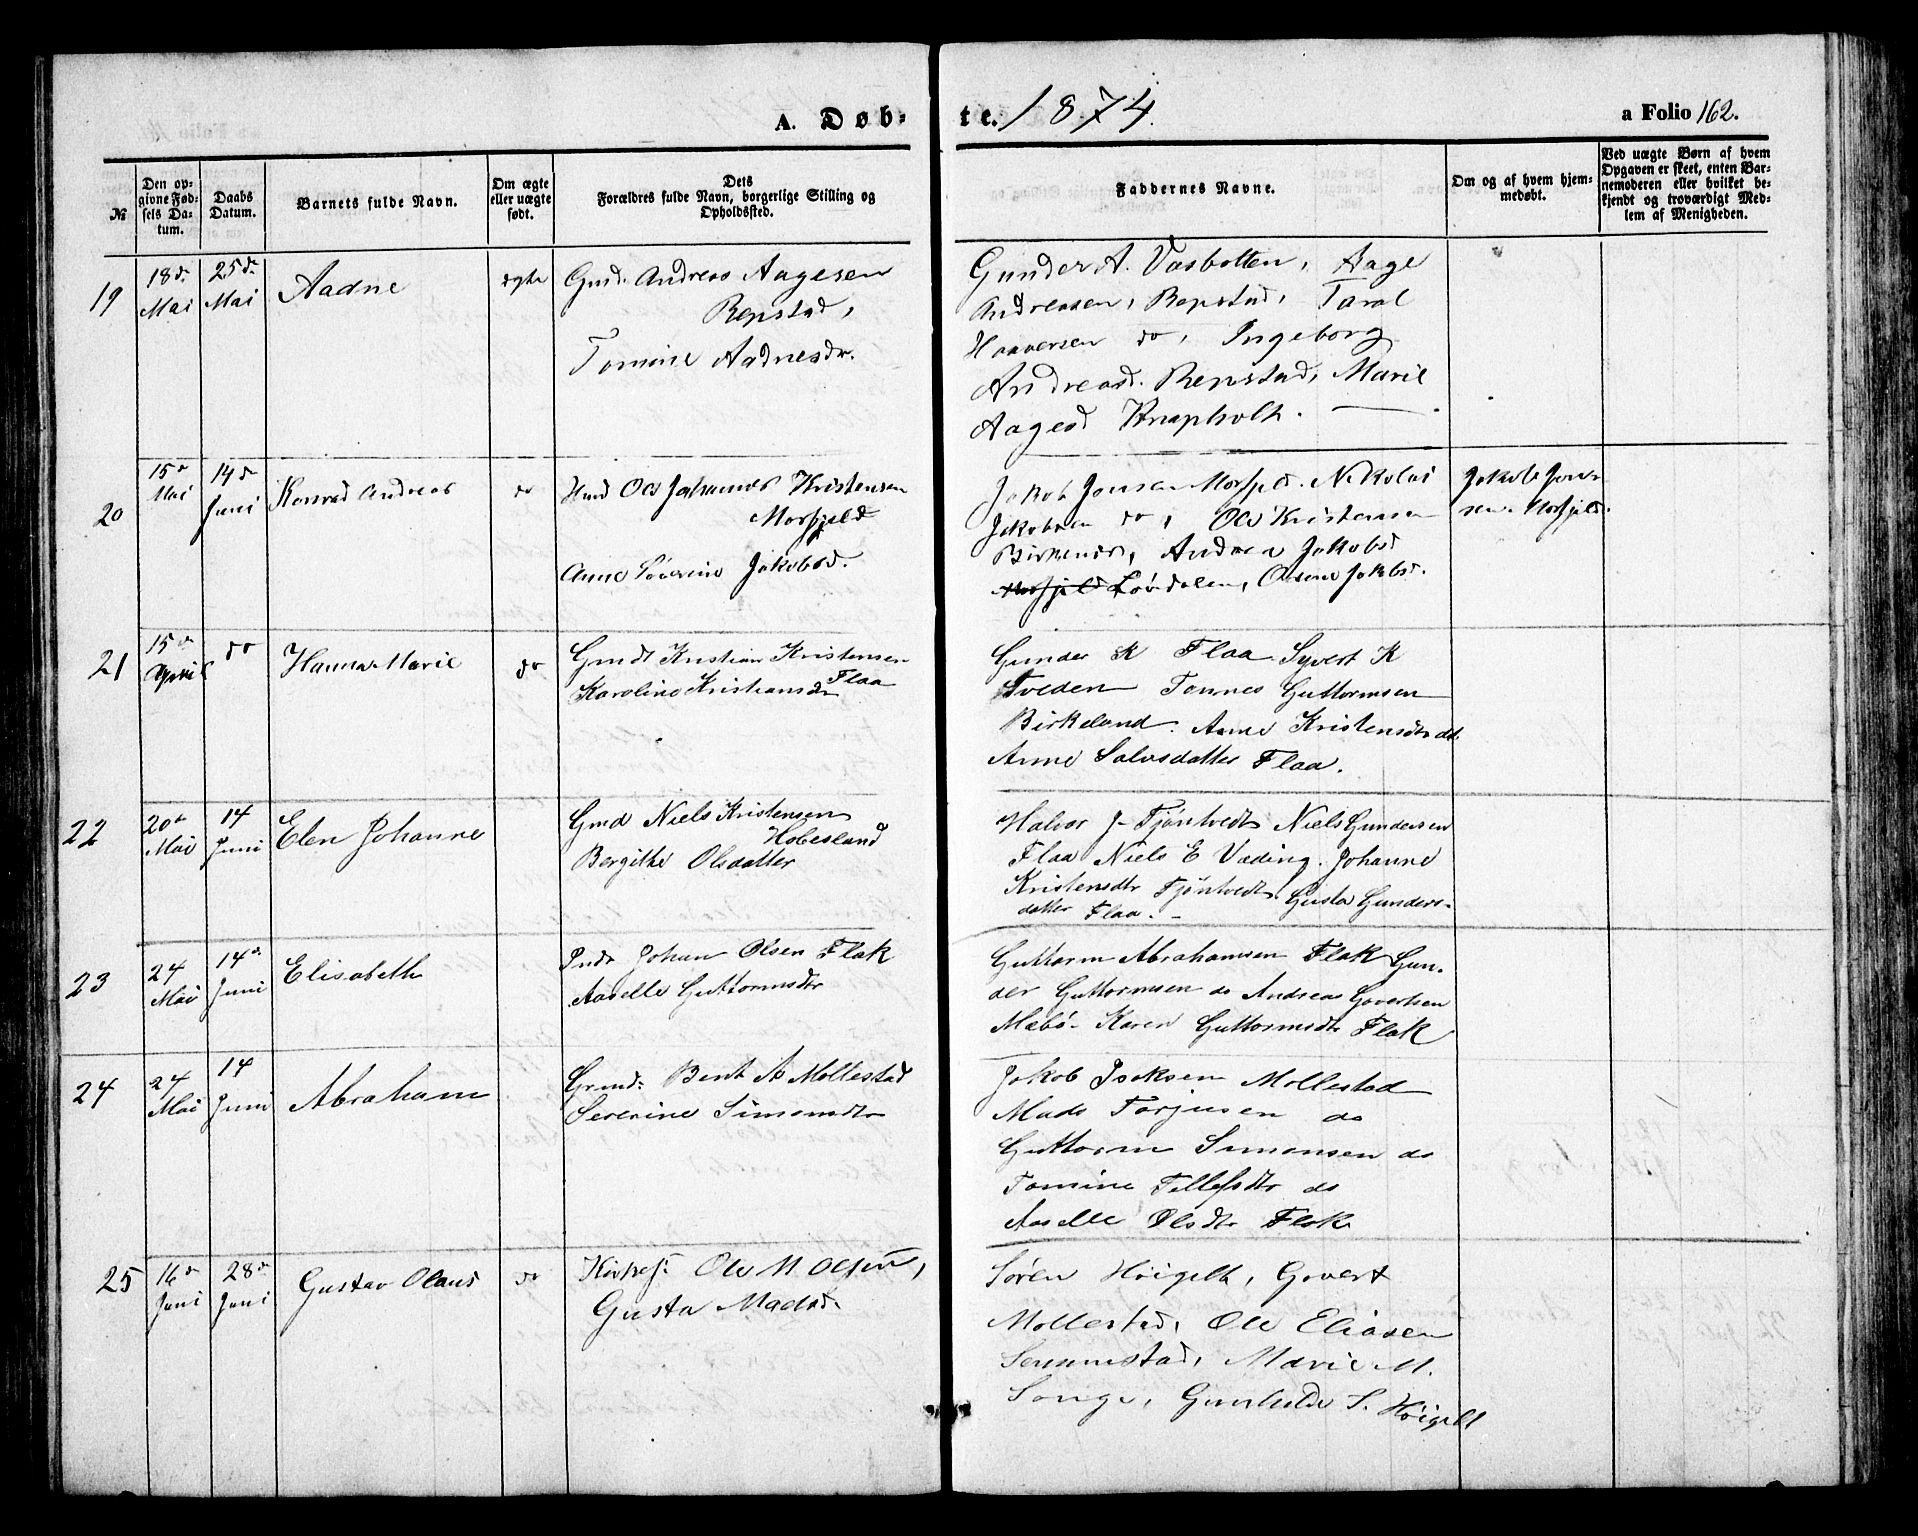 A. Døb- te. 1874.
a Folio 162.
№
Den op-
givne Fød-
sels Da-
tum.
Daabs
Datum.
Barnets fulde Navn.
Om ægte
eller uægte
født.
Dets
Forældres fulde Navn, borgerlige Stilling og
Opholdssted.
Faddernes Navne.
Om og af hvem hjem-
medøbt.
Ved uægte Børn af hvem
Opgaven er skeet, enten Bar-
nemoderen eller hvilket be-
kjendt og troværdigt Med-
lem af Menigheden.
19
18de
Mai
25de
Mai
Aadne
ægte
Gmd. Andreas Aagesen
Repstad,
Tomine Aadnesdr.
Gunder A. Vasbotten, Aage
Andreasen, Repstad, Taral
Haaversen do, Ingeborg
Andreasd. Repstad, Marie
Aagesd Knapholt.
20
15de
Mai
14de
Juni
Konrad Andreas
do
Hmd Ole Johannes Kristensen
Morfjeld
Anne Severine Jakobsd.
Jakob Jensen Morfjeld. Nikolai
Jakobsen do, Ole Kristensen
Birkenes, Andrea Jakobsd
Morfjeld Løvdalen, Olene Jakobsd.
Jakob Jen-
sen Morfjeld.
21
15de
April
do
Hanna Marie
do
Gmd Kristian Kristensen
Flaa
Karoline Kristiansdr
Gunder K Flaa Syvert K
Sveden Tonnes Guttormsen
Birkeland. Anne Kristensdtr do.
Anne Salvsdatter Flaa.
22
20de
Mai
14
Juni
Elen Johanne
Gmd Niels Kristensen
Hobesland
Bergithe Olsdatter
Halvor J Tjøntvedt Niels Gundersen
Flaa Niels E Væding. Johanne
Kristensdtr Tjøntvedt. Gusta Gunders-
datter Flaa.
23
24
Mai
14de
Juni
Elisabeth
Inds Johan Olsen Flak
Aaselle Guttormsdtr
Guttorm Abrahamsen Flak Gun-
der Guttormsen do Andreas Govertsen
Mæbø. Karen Guttormsdtr Flak
24
24
Mai
14
Juni
Abraham
Grmd: Bent A Mollestad
Severine Simonsdtr
Jakob Isaksen Mollestad
Mads Torjusen do
Guttorm Simonsen do
Tomine Tellefsdtr do
Aaselle Olsdtr Flak
25
16de
Juni
28de
Juni
Gustav Olaus
do
Kirkes: Ole M Olsen,
Gusta Madsd.
Søren Høigilt, Govert
Mollestad, Ole Eliasen
Senumstad, Marie M.
Songe, Gunhilde S. Høigilt